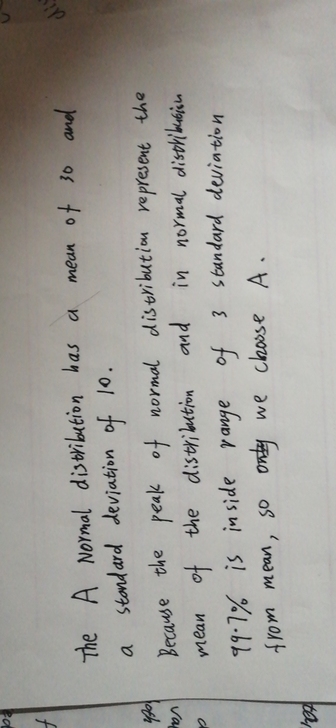 the A Normal distribution has a mean of 30 and
a standard deviation of 10.
Because the peak of normal distribution represent the
mean of the distribution and in normal distribution
99.7% is inside range of 3 standard deviation
from mean, so we choose A.